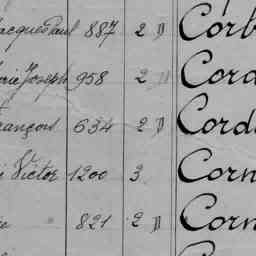 Jacques Paul 887 2 D Corb
Joseph 958 2 D Cord
François 634 2 D Cord
Victor 1200 3 Corn
821 2 D Corn